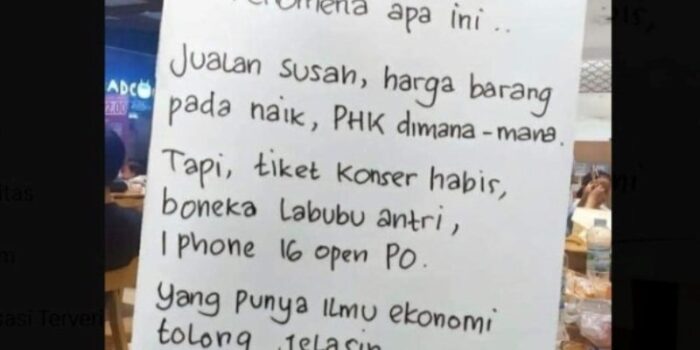 Fenomena apa ini..
Jualan susah, harga barang
pada naik, PHK dimana-mana.
Tapi, tiket konser habis,
boneka Labubu antri,
Iphone 16 open PO.
Yang punya ilmu ekonomi
tolong jelasin
ADC
2.00
itas
m
sasi Terveri